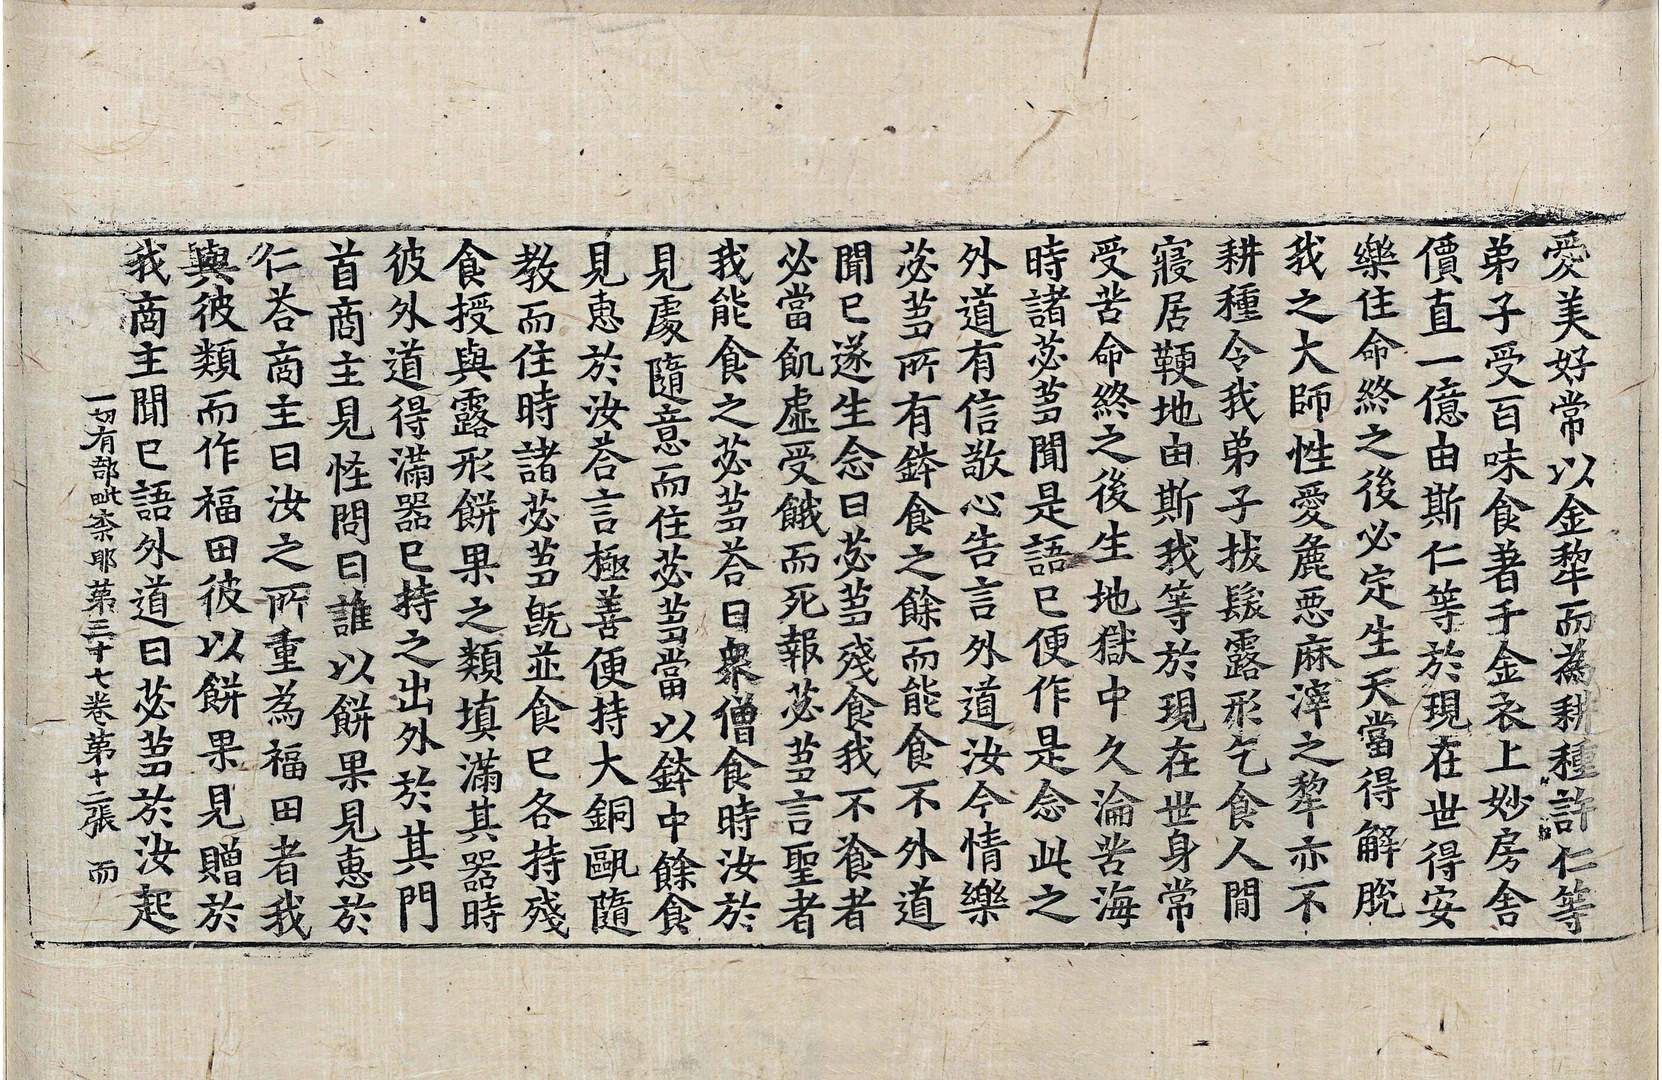 愛美好常以金犂而為耕種許仁等
弟子受百味食著千金衣上妙房舍
價直一億由斯仁等於現在世得安
樂住命終之後必定生天當得解脫
我之大師性愛麁惡麻滓之犂亦不
耕種令我弟子拔髮露形乞食人間
寢居鞕地由斯我等於現在世身常
受苦命終之後生地獄中久淪苦海
時諸苾芻聞是語已便作是念此之
外道有信敬心告言外道汝今情樂
苾芻所有鉢食之餘而能食不外道
聞已遂生念曰苾芻殘食我不飡者
必當飢虛受餓而死報苾芻言聖者
我能食之苾芻荅曰衆僧食時汝於
見處隨意而住苾芻當以鉢中餘食
見惠於汝荅言極善便持大銅甌隨
教而住時諸苾芻旣並食已各持殘
食授與露形餅果之類填滿其器時
彼外道得滿器已持之出外於其門
首商主見怪問曰誰以餅果見惠於
仁荅商主曰汝之所重為福田者我
與彼類而作福田彼以餅果見贈於
我商主聞已語外道曰苾芻於汝起
一切有部毗柰耶第三十七卷第十二張 而